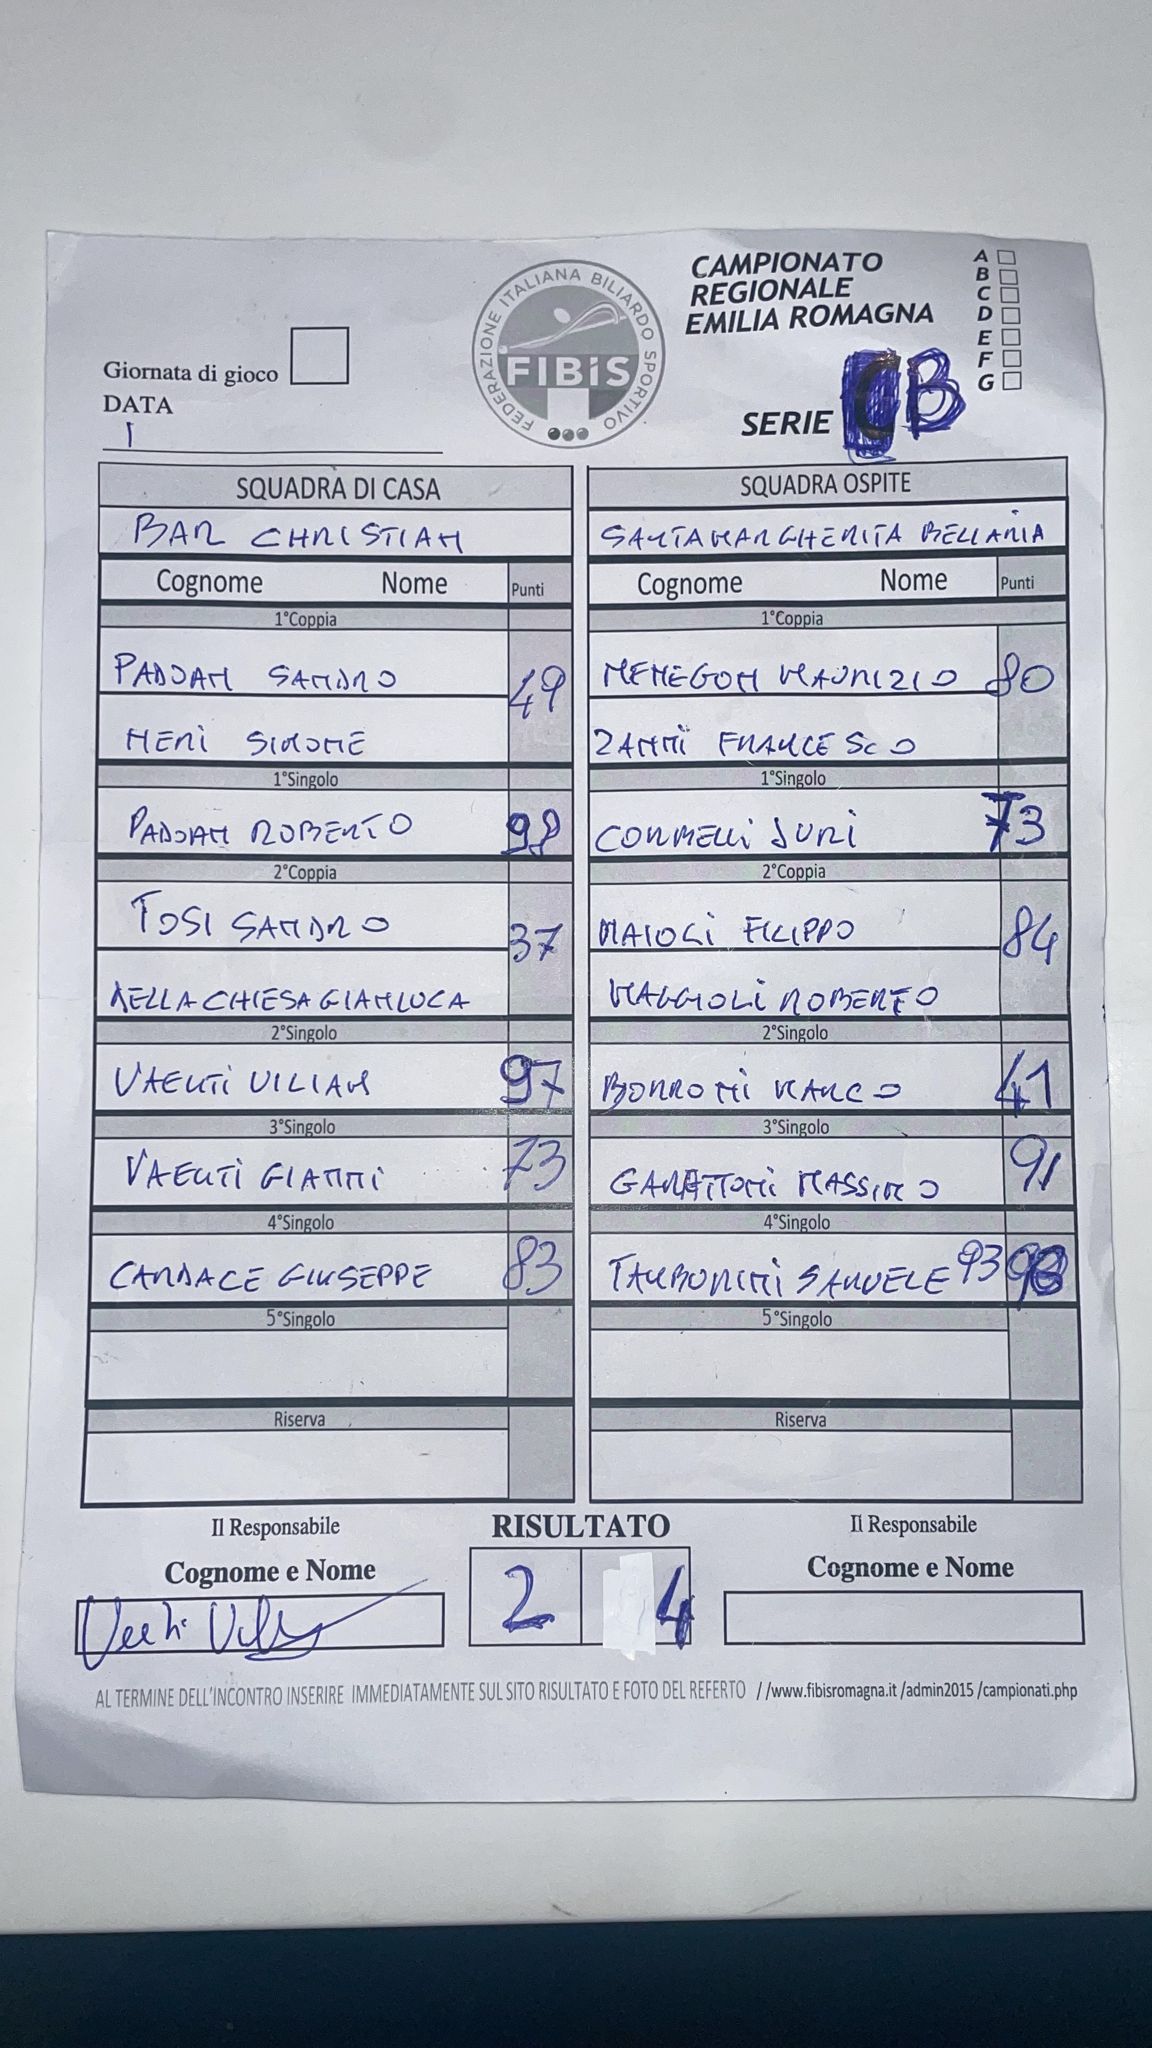 FEDERAZIONE ITALIANA BILIARDO SPORTIVO
FIBiS
CAMPIONATO
REGIONALE
EMILIA ROMAGNA
A
B
C
D
E
F
G
Giornata di gioco
DATA
SERIE B
SQUADRA DI CASA
SQUADRA OSPITE
BAR CHRISTIAN
SANTAMARGHERITA BELLARIA
Cognome Nome Punti
Cognome Nome Punti
1°Coppia
1°Coppia
PADOAN SANDRO 49
MENEGON MAURIZIO 80
NERI SIMONE
ZANNI FRANCESCO
1°Singolo
1°Singolo
PADOAN ROBERTO 98
CORBELLI JURI 73
2°Coppia
2°Coppia
TOSI SANDRO 37
MAIOLI FILIPPO 84
DELLA CHIESA GIANLUCA
MAGGIOLI ROBERTO
2°Singolo
2°Singolo
VAENTI VILIAM 97
BORRONI MARCO 41
3°Singolo
3°Singolo
VAENTI GIANNI 73
GARATTONI MASSIMO 91
4°Singolo
4°Singolo
CANDACE GIUSEPPE 83
TAMBORINI SAMUELE 93
5°Singolo
5°Singolo
Riserva
Riserva
Il Responsabile
RISULTATO
Il Responsabile
Cognome e Nome
Cognome e Nome
2 4
AL TERMINE DELL'INCONTRO INSERIRE IMMEDIATAMENTE SUL SITO RISULTATO E FOTO DEL REFERTO //www.fibisromagna.it /admin2015 /campionati.php